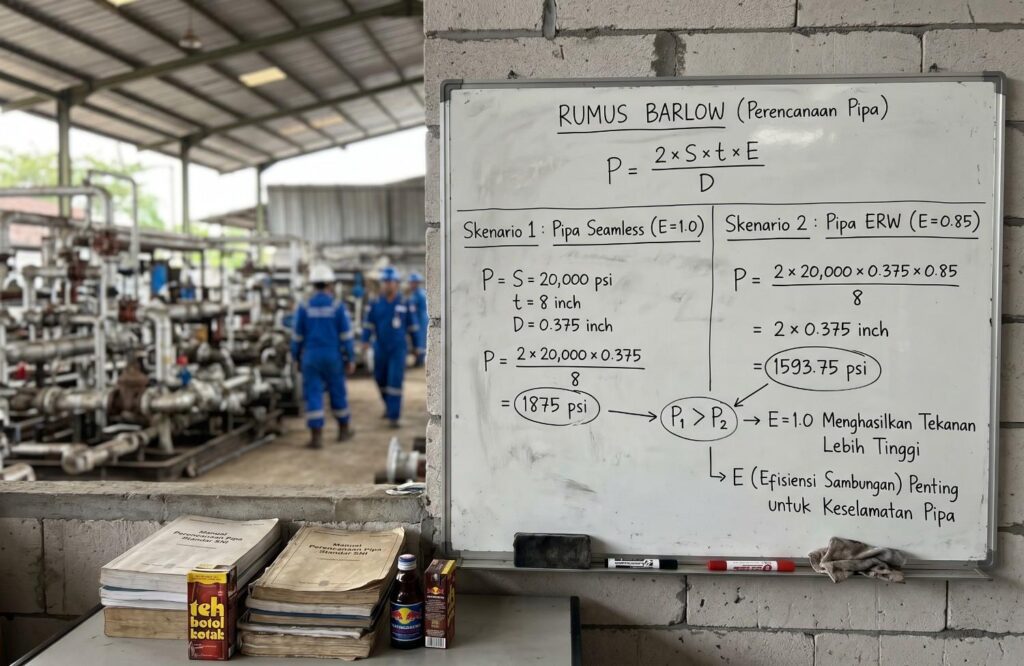 RUMUS BARLOW (Perencanaan Pipa)
P = 2 × S × t × E / D
Skenario 1 : Pipa Seamless (E=1.0)
P = S = 20,000 psi
t = 8 inch
D = 0.375 inch
P = 2 × 20,000 × 0.375 / 8
= 1875 psi
Skenario 2 : Pipa ERW (E=0.85)
P = 2 × 20,000 × 0.375 × 0.85 / 8
= 2 × 0.375 inch
= 1593.75 psi
P₁ > P₂ → E=1.0 Menghasilkan Tekanan
Lebih Tinggi
E (Efisiensi Sambungan) Penting
untuk Keselamatan Pipa
Manual
Perencanaan Pipa
Standar SNI
Manual
Perencanaan Pipa
Standar SNI
teh
botol
kotak